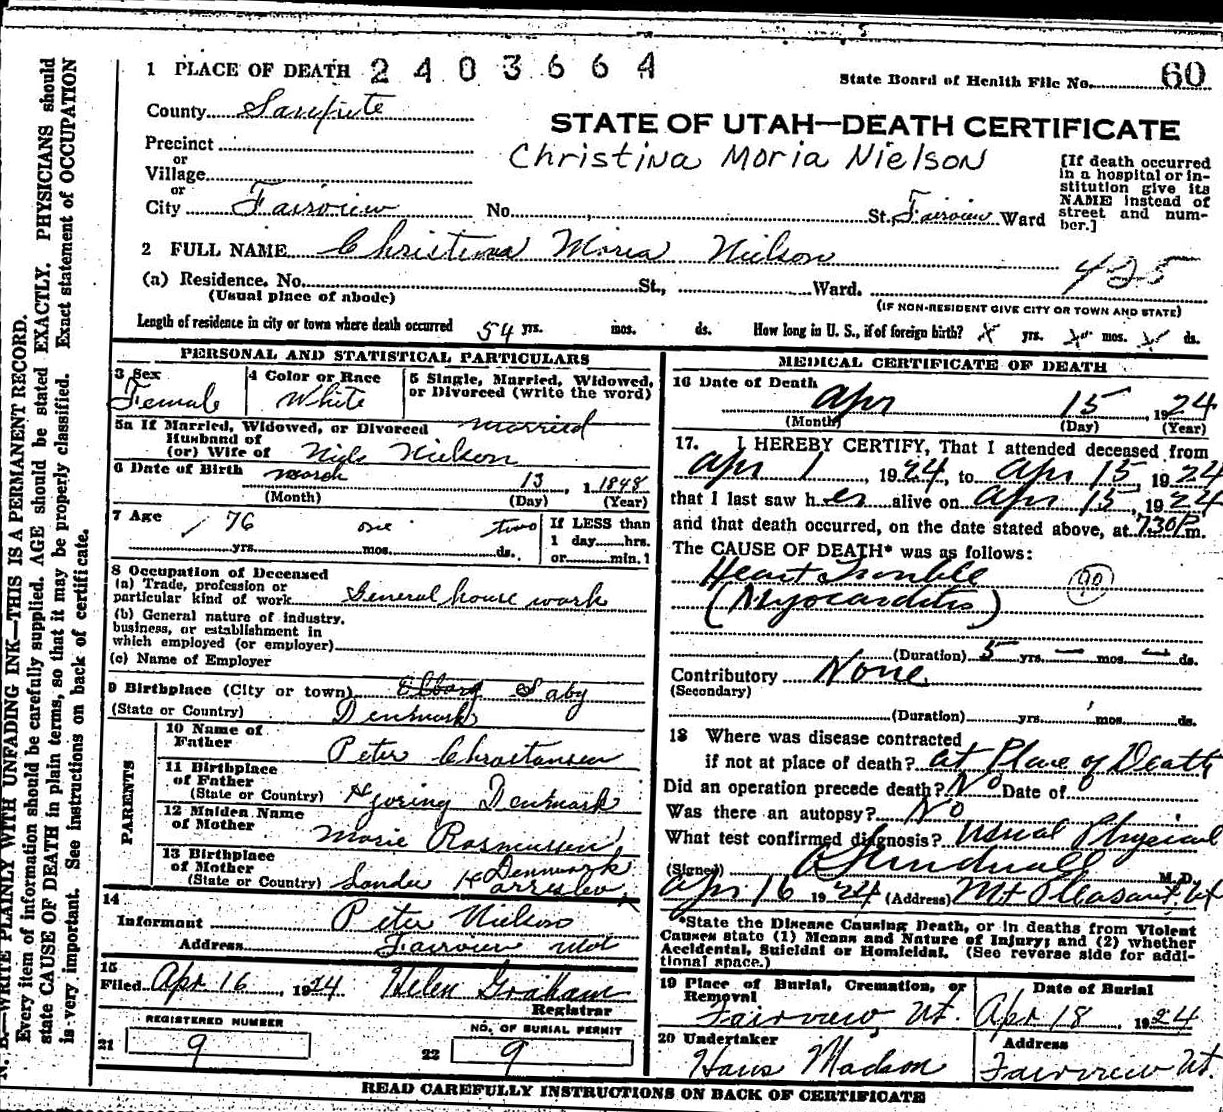 1 PLACE OF DEATH 2403664
State Board of Health File No. 60
County Sanpete
STATE OF UTAH—DEATH CERTIFICATE
Precinct
or
Village
or
City Fairview No. St., Fairview Ward
Christina Moria Nielson
[If death occurred
in a hospital or in-
stitution give its
NAME instead of
street and num-
ber.]
2 FULL NAME Christina Moria Nielson
425
(a) Residence. No. St., Ward.
(Usual place of abode) (IF NON-RESIDENT GIVE CITY OR TOWN AND STATE)
Length of residence in city or town where death occurred 54 yrs. mos. ds. How long in U. S., if of foreign birth? x yrs. x mos. x ds.
PERSONAL AND STATISTICAL PARTICULARS
3 Sex
Female
4 Color or Race
White
5 Single, Married, Widowed,
or Divorced (write the word)
married
5a If Married, Widowed, or Divorced
Husband of
(or) Wife of Niels Nielson
6 Date of Birth March 13, 1 1848
(Month) (Day) (Year)
7 Age 76 one two
yrs. mos. ds.
If LESS than
1 day hrs.
or min.1
8 Occupation of Deceased
(a) Trade, profession or
particular kind of work General house work
(b) General nature of industry,
business, or establishment in
which employed (or employer)
(c) Name of Employer
9 Birthplace (City or town) Elborg Saby
(State or Country) Denmark
PARENTS
10 Name of
Father Peter Christansen
11 Birthplace
of Father
(State or Country) Hjoring Denmark
12 Maiden Name
of Mother Marie Rasmussen
13 Birthplace
of Mother Denmark
(State or Country) Sander
14
Informant Peter Nielson
Address Fairview Utah
15
Filed Apr 16, 1924 Helen Graham
Registrar
REGISTERED NUMBER
21 9
NO. OF BURIAL PERMIT
22 9
MEDICAL CERTIFICATE OF DEATH
16 Date of Death
Apr 15, 1924
(Month) (Day) (Year)
17. I HEREBY CERTIFY, That I attended deceased from
Apr 1, 1924, to Apr 15, 1924
that I last saw her alive on Apr 15, 1924
and that death occurred, on the date stated above, at 730P m.
The CAUSE OF DEATH* was as follows:
Heart Trouble 90
(Myocarditis)
(Duration) 5 yrs. — mos. — ds.
Contributory None
(Secondary)
(Duration) yrs. mos. ds.
18 Where was disease contracted
if not at place of death? At Place of Death
Did an operation precede death? No Date of 0
Was there an autopsy? No
What test confirmed diagnosis? Usual Physical
(Signed) M.D.
Apr 16 1924 (Address) Mt Pleasant, Ut
*State the Disease Causing Death, or in deaths from Violent
Causes state (1) Means and Nature of Injury; and (2) whether
Accidental, Suicidal or Homicidal. (See reverse side for addi-
tional space.)
19 Place of Burial, Cremation, or
Removal
Fairview, Ut.
Date of Burial
Apr 18, 1924
20 Undertaker
Hans Madson
Address
Fairview Ut.
READ CAREFULLY INSTRUCTIONS ON BACK OF CERTIFICATE
N. B.—WRITE PLAINLY WITH UNFADING INK—THIS IS A PERMANENT RECORD.
Every item of information should be carefully supplied. AGE should be stated EXACTLY. PHYSICIANS should
state CAUSE OF DEATH in plain terms, so that it may be properly classified. Exact statement of OCCUPATION
is very important. See instructions on back of certificate.